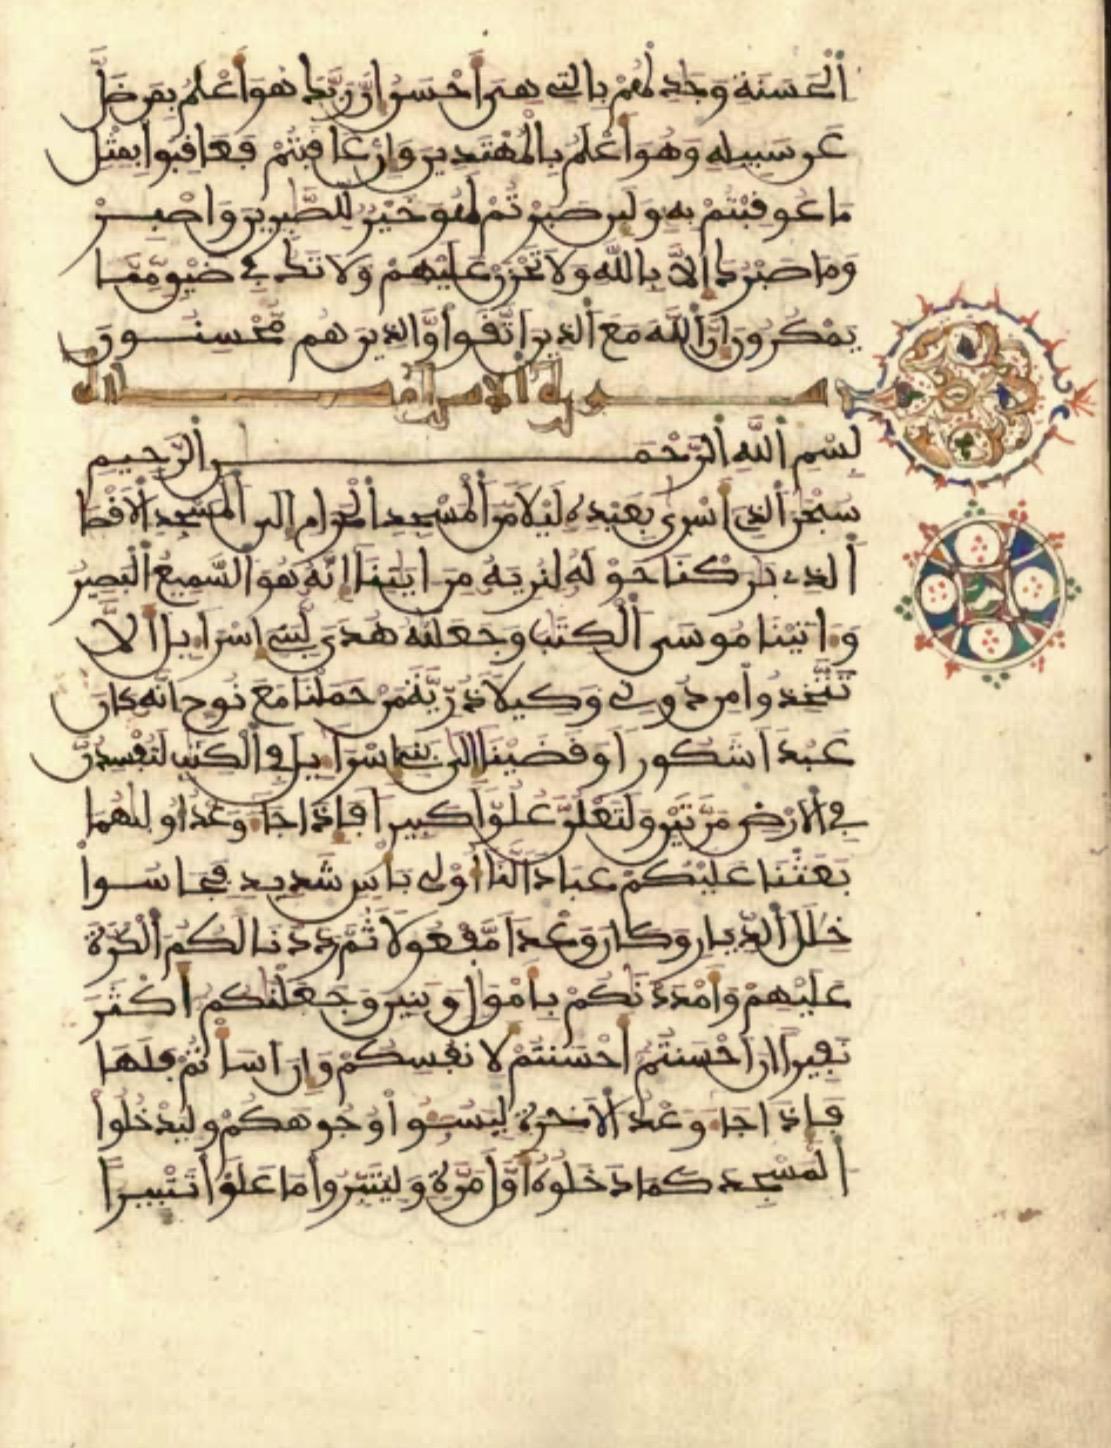 الحسنة وجدلهم بالتي هي أحسن إن ربك هو أعلم بمن ضل
عن سبيله وهو أعلم بالمهتدين وإن عاقبتم فعاقبوا بمثل
ما عوقبتم به ولين صبرتم لهو خير للصبرين واصبر
وما صبرك إلا بالله ولا تحزن عليهم ولا تك في ضيق مما
يمكرون إن الله مع الذين اتقوا والذين هم محسنون
سورة الإسراء
بسم الله الرحمن الرحيم
سبحن الذي أسرى بعبده ليلا من المسجد الحرام إلى المسجد الأقصا
الذي بركنا حوله لنريه من ايتنا إنه هو السميع البصير
واتينا موسى الكتب وجعلنه هدى لبني إسراءيل ألا
تتخذوا من دوني وكيلا ذرية من حملنا مع نوح إنه كان
عبدا شكورا وقضينا إلى بني إسراءيل في الكتب لتفسدن
في الأرض مرتين ولتعلن علوا كبيرا فإذا جاء وعد أوليهما
بعثنا عليكم عبادا لنا أولي بأس شديد فجاسوا
خلل الديار وكان وعدا مفعولا ثم رددنا لكم الكرة
عليهم وأمددنكم بأمول وبنين وجعلنكم أكثر
نفيرا إن أحسنتم أحسنتم لأنفسكم وإن أسأتم فلها
فإذا جاء وعد الأخرة ليسئوا وجوهكم وليدخلوا
المسجد كما دخلوه أول مرة وليتبروا ما علوا تتبيرا